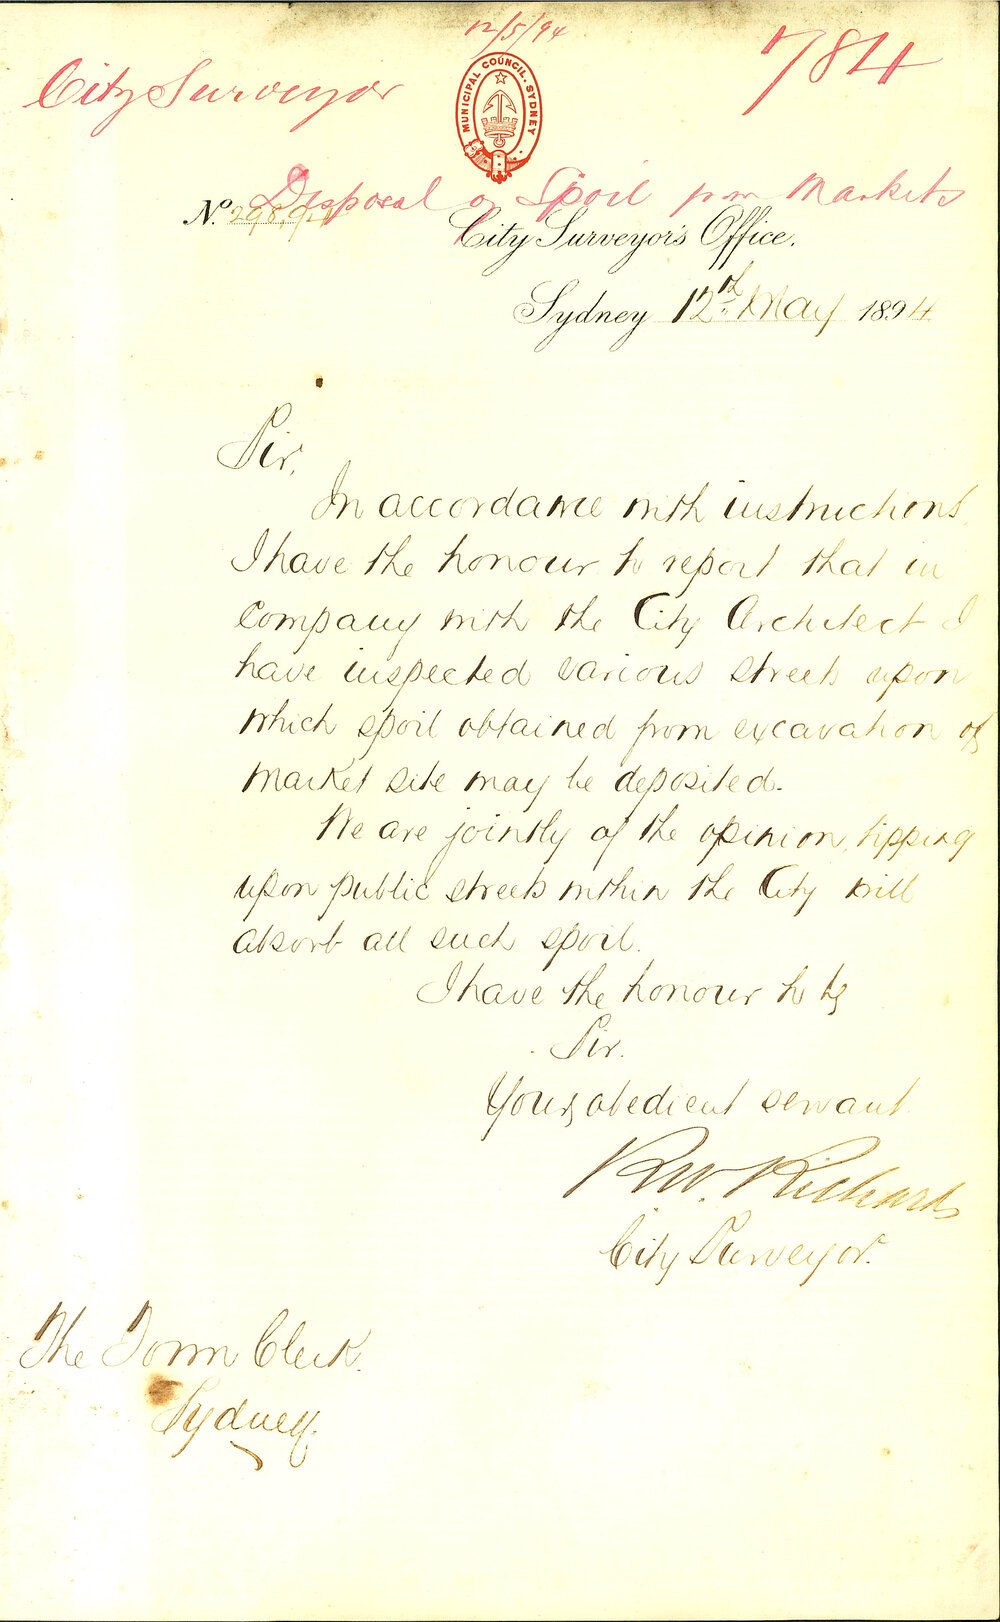 12/5/94
City Surveyor
784
MUNICIPAL COUNCIL. SYDNEY
Disposal of Spoil from Markets
No.
City Surveyor's Office.
Sydney 12th May 1894
Sir,
In accordance with instructions
I have the honour to report that in
company with the City Architect I
have inspected various streets upon
which spoil obtained from excavation of
Market site may be deposited.
We are jointly of the opinion, tipping
upon public streets within the City will
absorb all such spoil.
I have the honour to be
Sir.
Your obedient servant
R.W. Richards
City Surveyor.
The Town Clerk.
Sydney.